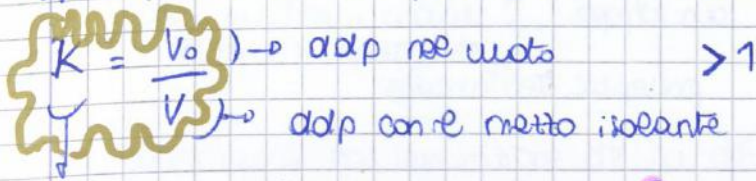 K = V₀ → ddp nel vuoto > 1
V → ddp con il mezzo isolante